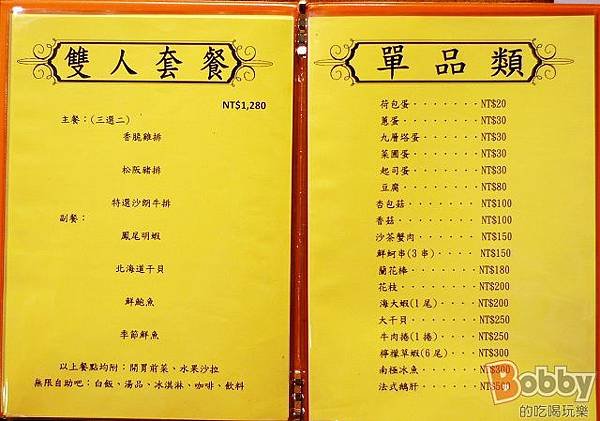 雙人套餐
NT$1,280
主餐：(三選二)
香脆雞排
松阪豬排
特選沙朗牛排
副餐：
鳳尾明蝦
北海道干貝
鮮鮑魚
季節鮮魚
以上餐點均附：開胃前菜、水果沙拉
無限自助吧：白飯、湯品、冰淇淋、咖啡、飲料
單品類
荷包蛋········NT$20
蔥蛋········NT$30
九層塔蛋·······NT$30
菜圃蛋·······NT$30
起司蛋·······NT$30
豆腐········NT$80
杏包菇·······NT$100
香菇········NT$100
沙茶蟹肉······NT$150
鮮蚵串(3串)·····NT$150
蘭花棒·······NT$180
花枝········NT$200
海大蝦(1尾)·····NT$200
大干貝·······NT$250
牛肉捲(1捲)·····NT$250
檸檬草蝦(6尾)····NT$300
南極冰魚······NT$300
法式鵝肝······NT$500
Bobby
的吃喝玩樂